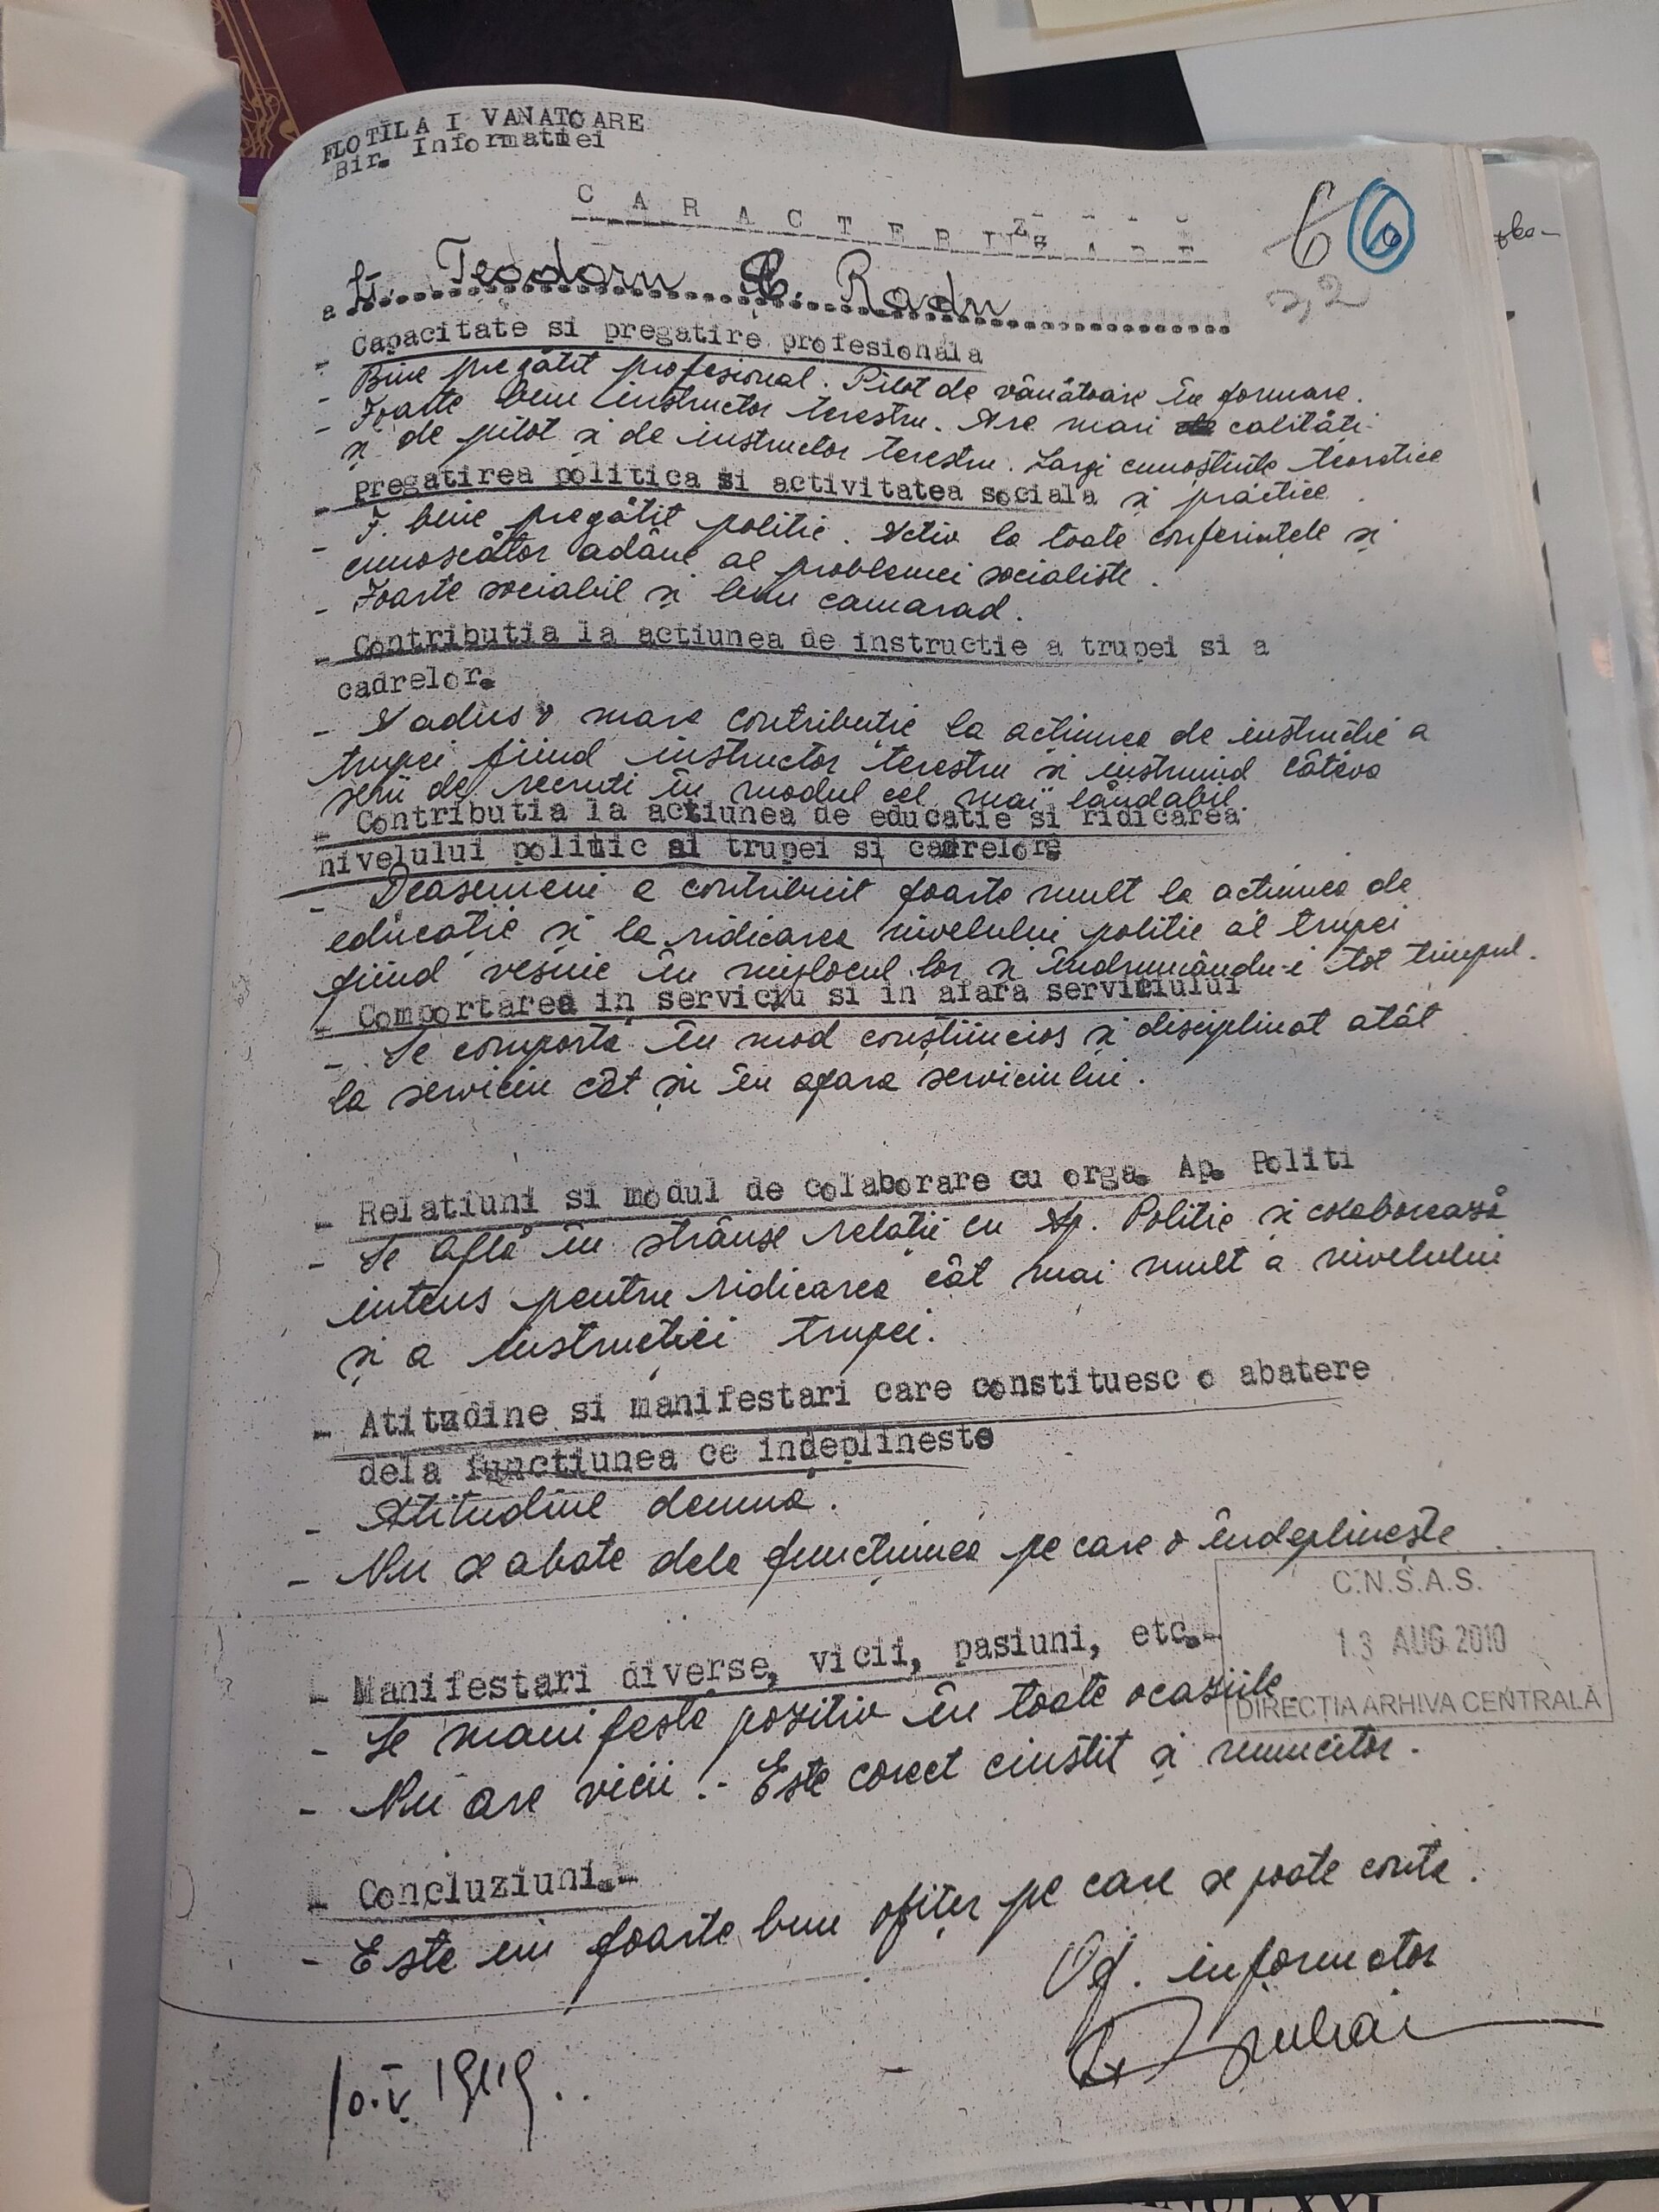 FLOTILA I VANATOARE
Bir. Informatiei
C A R A C T E R I Z A R E
66
a Lt. Teodoru C. Radu
- Capacitate si pregatire profesionala
- Bine pregătit profesional. Pilot de vânătoare în formare.
- Foarte bun instructor terestru. Are mari calități
și de pilot și de instructor terestru. Largi cunoștințe teoretice
- Pregatirea politica si activitatea sociala și practice.
- F. bine pregătit politic. Activ la toate conferintele și
cunoscător adânc al problemei socialiste.
- Foarte sociabil și bun camarad.
- Contributia la actiunea de instructie a trupei si a
cadrelor.
- A adus o mare contributie la actiunea de instrucție a
trupei fiind instructor terestru și instruind câteva
serii de recruti în modul cel mai lăudabil.
- Contributia la actiunea de educatie si ridicarea
nivelului politic al trupei si cadrelor
- Deasemeni a contribuit foarte mult la actiunea de
educație și la ridicarea nivelului politic al trupei
fiind veșnic în mijlocul lor și îndrumându-i tot timpul.
- Comportarea in serviciu si in afara serviciului
- Se comportă în mod conștiincios și disciplinat atât
la serviciu cât și în afara serviciului.
- Relatiuni si modul de colaborare cu orga. Ap. Politi
- Se află în strânse relații cu Ap. Politic și colaborează
intens pentru ridicarea cât mai mult a nivelului
și a instrucției trupei.
- Atitudine si manifestari care constituesc o abatere
dela functiunea ce indeplineste
- Atitudine demnă.
- Nu se abate dela funcțiunea pe care o îndeplinește
C.N.S.A.S.
13 AUG 2010
DIRECȚIA ARHIVA CENTRALĂ
- Manifestari diverse, vicii, pasiuni, etc.-
- Se manifestă pozitiv în toate ocaziile
- Nu are vicii. - Este corect cinstit și muncitor.
- Concluziuni.-
- Este un foarte bun ofițer pe care se poate conta.
Of. informator
10.V.1949..